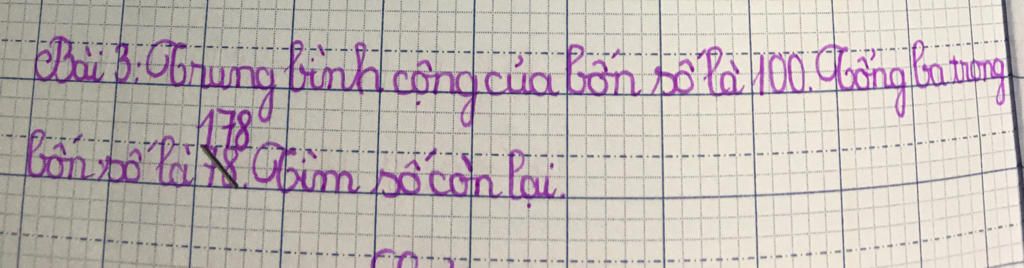 Bài 3: Trung bình cộng của bốn số là 100. Tổng ba trong
178
bốn số là . Tìm số còn lại.